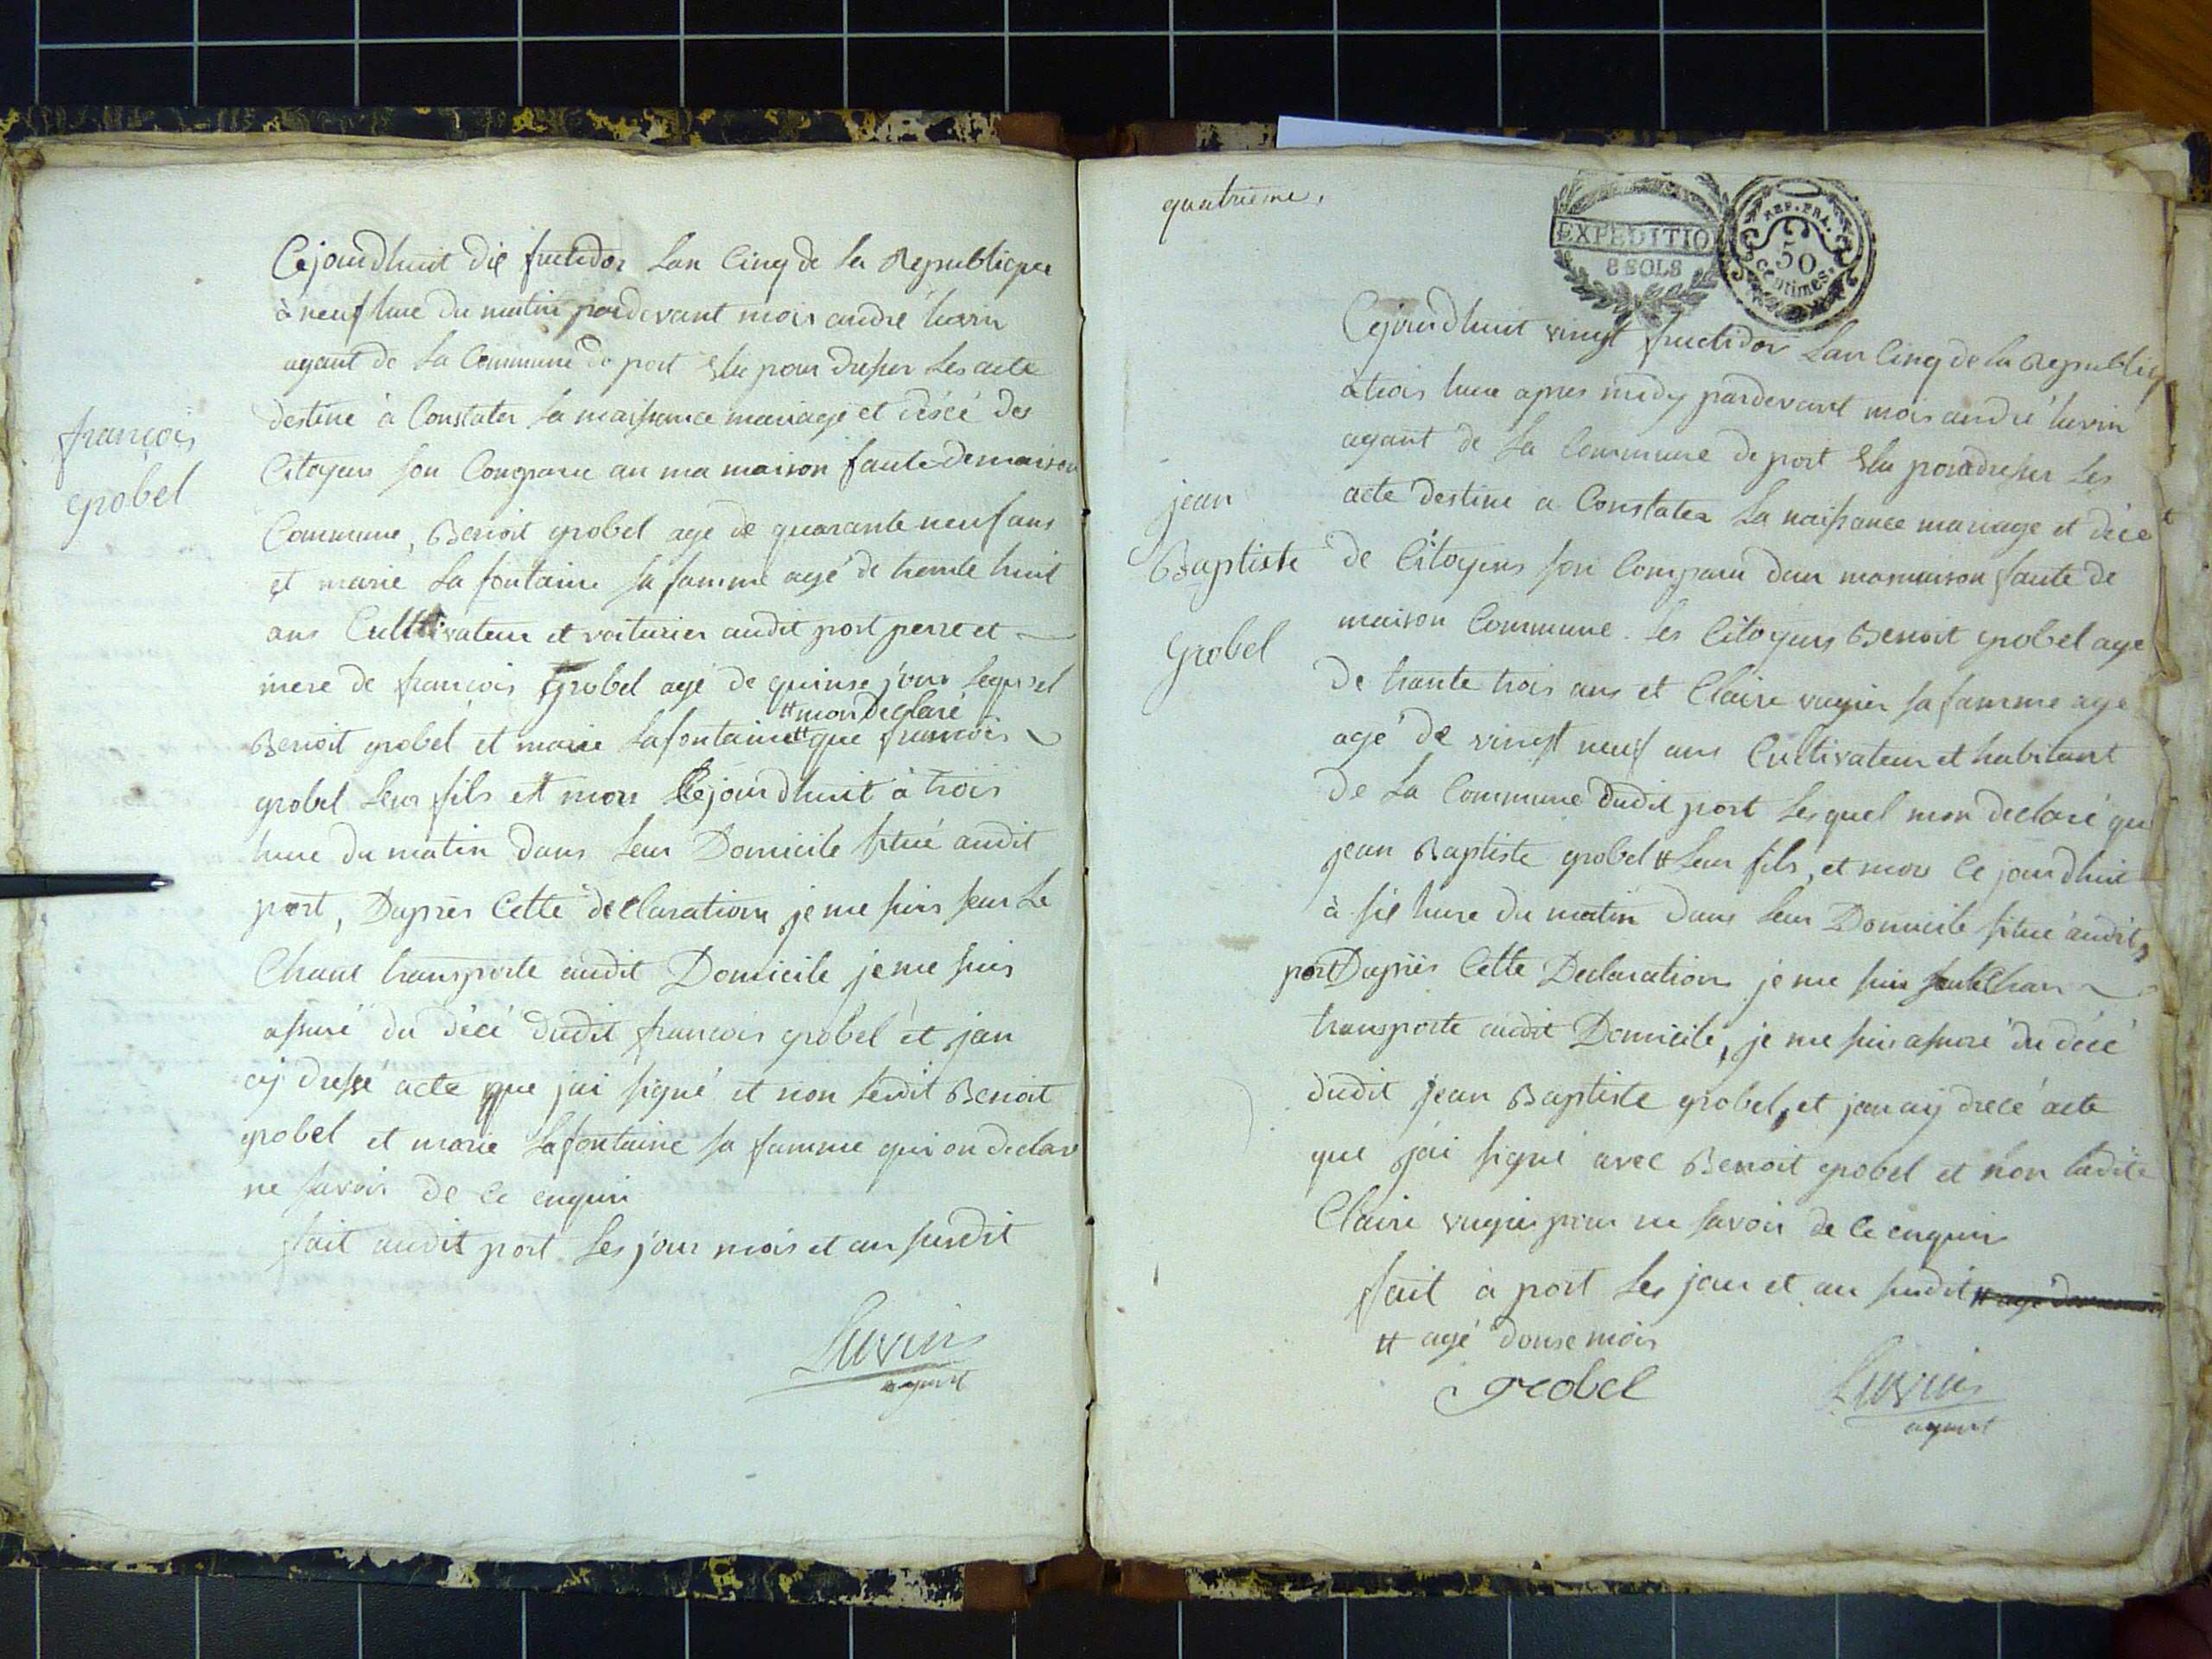 Cejourdhuit dix fructidor Lan Cinq de La Republique
à neuf hure du matin pardevant mois andré luvin
agant de La Commune de port Elu pour dresser Les acte
destiné à Constater La naissance mariage et décé des
Citoyens son Comparu an ma maison faute de maison
Commune, Benoit grobel agé de quarante neuf ans
et marie La fontaine sa famme agé de trente huit
ans Cultivateur et voiturier audit port perre et
mere de françois grobel agé de quinse jour Lequel
##mon Declaré
Benoit grobel et marie Lafontaine## que francois
grobel Leur fils et mors Cejourdhuit à trois
hure du matin dans Leur Domicile situé audit
port, Daprès Cette déclaration je me suis seur Le
Chant transporte audit Domicile je me suis
assuré du décé dudit francois grobel et jan
aij dressé acte que jai signé et non Ledit Benoit
grobel et marie Lafontaine sa famme qui on declaré
ne savoir de ce enquiri
fait audit port Les jour mois et an susdit
Luvin
agant
françois
grobel
quatrieme,
EXPEDITIO
8 SOLS
REP. FRA.
50
centimes.
Cejourdhuit vingt fructidor Lan Cinq de La Republiq
à trois hure apres midy pardevant mois andré luvin
agant de La Commune de port Elu pour dresser Les
acte destiné a Constater La naissance mariage et décé
de Citoyens son Comparu dan ma maison faute de
maison Commune. Les Citoyens Benoit grobel agé
de trante trois ans et Claire vugier sa famme agé
agé de vingt neuf ans Cultivateur et habitant
de La Commune dudit port Lesquel mon declaré que
jean Baptiste grobel ## Leur fils, et mors Ce jourdhuit
à six hure du matin dans Leur Domicile situé audit
port Daprès Cette Declaration je me suis seur Le Chan
transporte audit Domicile, je me suis assuré du décé
dudit jean Baptiste grobel, et jan aij drecé acte
que jai signé avec Benoit grobel et non Ladite
Claire vugier pour ne savoir de ce enquiri
fait à port Les jour et an susdit
## agé douse mois
grobel
Luvin
agant
jean
Baptiste
grobel